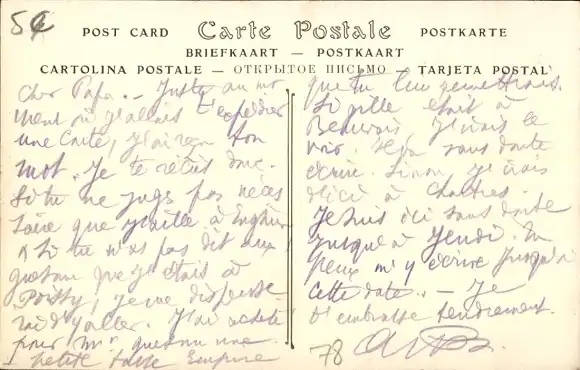 5
POST CARD Carte Postale POSTKARTE
BRIEFKAART — POSTKAART
CARTOLINA POSTALE — ОТКРЫТОЕ ПИСЬМО — TARJETA POSTAL
Cher Papa. — Juste au mo
ment où j'allais t'expédier
une carte, j'ai reçu ton
mot. Je te récris donc.
Si tu ne juges pas néces
saire que j'aille à Enghien
Si tu n'as pas dit aux
que j'étais à
Poissy, je me dispense-
rai d'y aller. J'ai acheté
pour une
petite tasse Empire
que tu lui remettrais.
Si Gille était à
Beauvais j'irais le
voir. sans doute
écrire. Sinon j'irais
d'ici à Chartres.
Je suis ici sans doute
jusqu'à Jeudi. Tu
peux m'y écrire jusqu'à
cette date. — Je
t'embrasse tendrement.
78